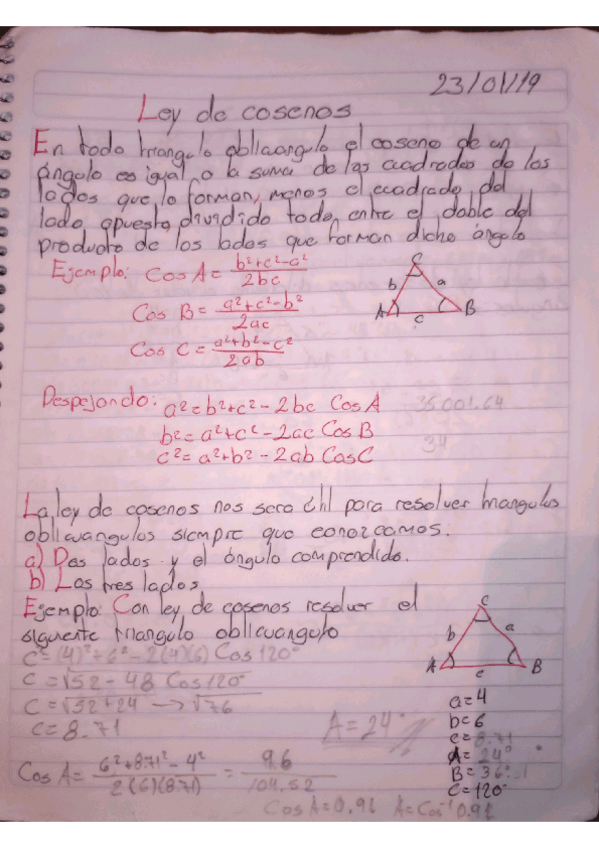 23/01/19
Ley de cosenos
En todo triangulo oblicuangulo el coseno de un
ángulo es igual a la suma de los cuadrados de los
lados que lo forman, menos el cuadrado del
lado opuesto dividido todo, entre el doble del
producto de los lados que forman dicho ángulo
Ejemplo: Cos A = b²+c²-a² / 2bc
Cos B = a²+c²-b² / 2ac
Cos C = a²+b²-c² / 2ab
C
b a
A B
c
Despejando: a²=b²+c²-2bc Cos A 35001.64
b²=a²+c²-2ac Cos B 34
c²=a²+b²-2ab Cos C
La ley de cosenos nos sera útil para resolver triangulos
oblicuangulos siempre que conozcamos.
a) Dos lados y el ángulo comprendido.
b) Los tres lados
Ejemplo: Con ley de cosenos resolver el
siguiente triangulo oblicuangulo
C
b a
A B
c
C=(4)²+6²-2(4)(6) Cos 120°
C=√52-48 Cos 120°
C=√52+24 → √76
C=8.71
A=24°
a=4
b=6
c=8.71
A=24°
B=36°
C=120°
Cos A = 6²+8.71²-4² / 2(6)(8.71) = 96 / 104.52
Cos A=0.91 A=Cos⁻¹ 0.91